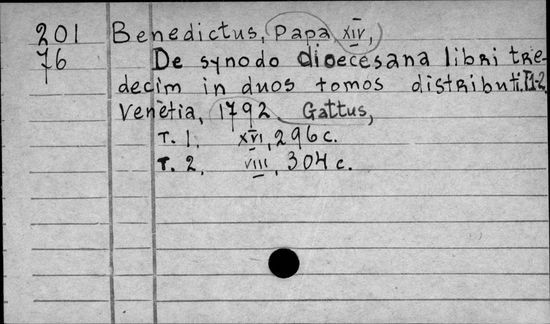 201 Benedictus, Papa XIV,
76 De synodo dioecesana libri tre-
decim in duos tomos distributi. [1-2]
Venetia, 1792 Gattus,
T. 1, XVI, 296 c.
T. 2, VIII, 304 c.